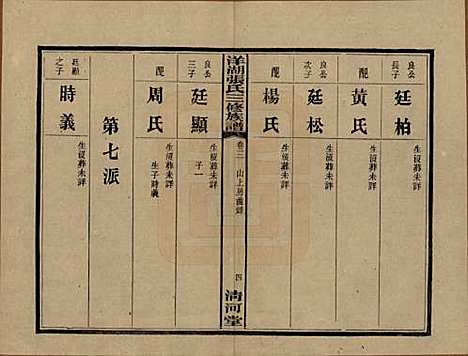 良公長子
廷柏
生沒葬未詳
配
黃氏
生沒葬未詳
良公次子
廷松
生沒葬未詳
配
楊氏
生沒葬未詳
洋湖張氏三修族譜
卷三
山上房
四
清河堂
良公三子
廷顯
生沒葬未詳
子一
配
周氏
生沒葬未詳
生子時義
第七派
廷顯之子
時義
生沒葬未詳